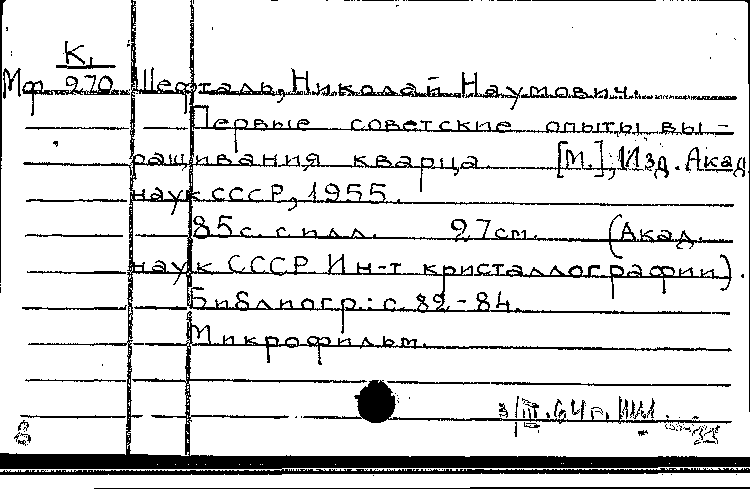 К1
Мф 270 Шефталь, Николай Наумович.
Первые советские опыты вы-
ращивания кварца. [М.], Изд. Акад.
наук СССР, 1955.
85с. с илл. 27см. (Акад.
наук СССР Ин-т кристаллографии).
Библиогр.: с. 82-84.
Микрофильм.
3/III.64г.
8